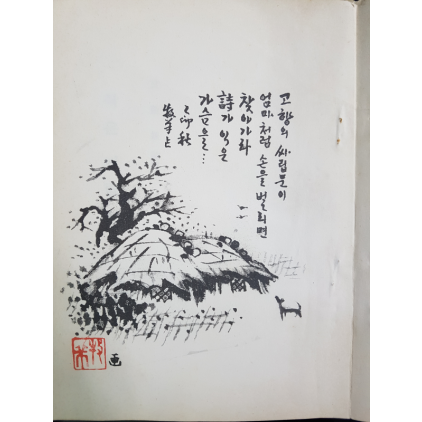 고향의 싸립문이
엄마처럼 손을 벌리면
찾아가라
詩가 익은
가슴을…
画